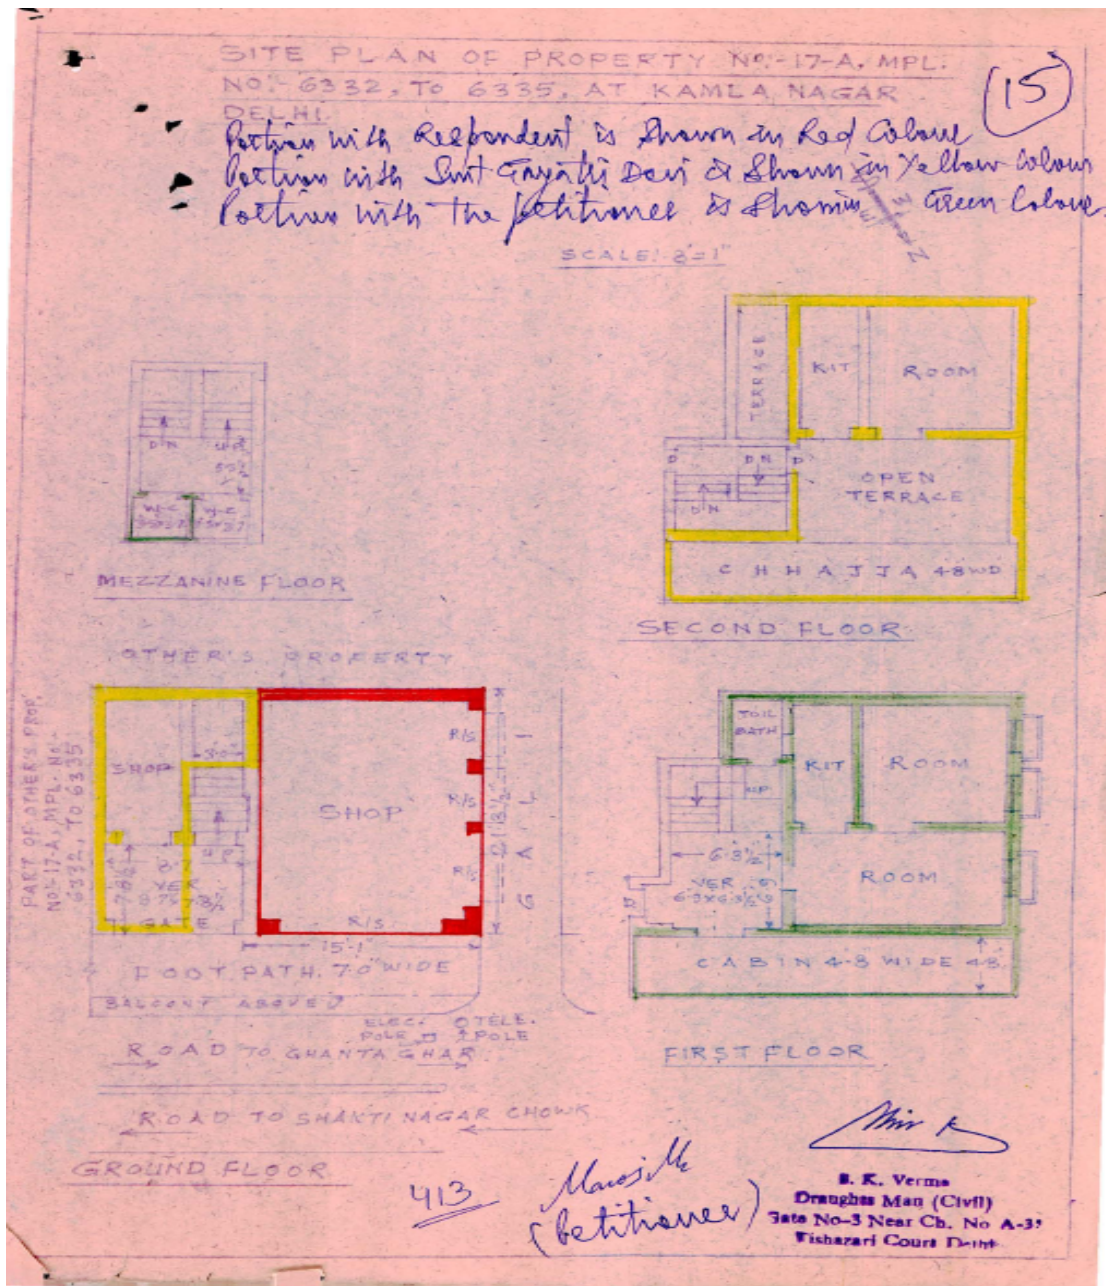 SITE PLAN OF PROPERTY NO:-17-A, MPL.
NO:- 6332, TO 6335, AT KAMLA NAGAR
DELHI.
(15)
Portion with Respondent is Shown in Red Colour
Portion with Smt Gayatri Devi is Shown in Yellow Colour
Portion with the petitioner is Shown in Green Colour.
SCALE:- 8'=1"
TERRACE
KIT
ROOM
DN
UP
W.C
W.C
D
DN
D
DN
OPEN
TERRACE
CHHAJJA 4-8 WD
MEZZANINE FLOOR
SECOND FLOOR
OTHER'S PROPERTY
PART OF OTHER'S PROP.
NO:-17-A, MPL. NO:-
6332, TO 6335
SHOP
SHOP
R/S
R/S
R/S
R/S
GALI
15'-1"
FOOT PATH. 7.0 WIDE
BALCONY ABOVE
ELEC.
POLE
TELE.
POLE
ROAD TO GHANTA GHAR
ROAD TO SHAKTI NAGAR CHOWK
GROUND FLOOR
TOIL
BATH
KIT
ROOM
UP
ROOM
VER
CABIN 4-8 WIDE 4-8
FIRST FLOOR
413
(Petitioner)
B. K. Verma
Draughts Man (Civil)
Gate No-3 Near Ch. No A-3
Tishazari Court Delhi